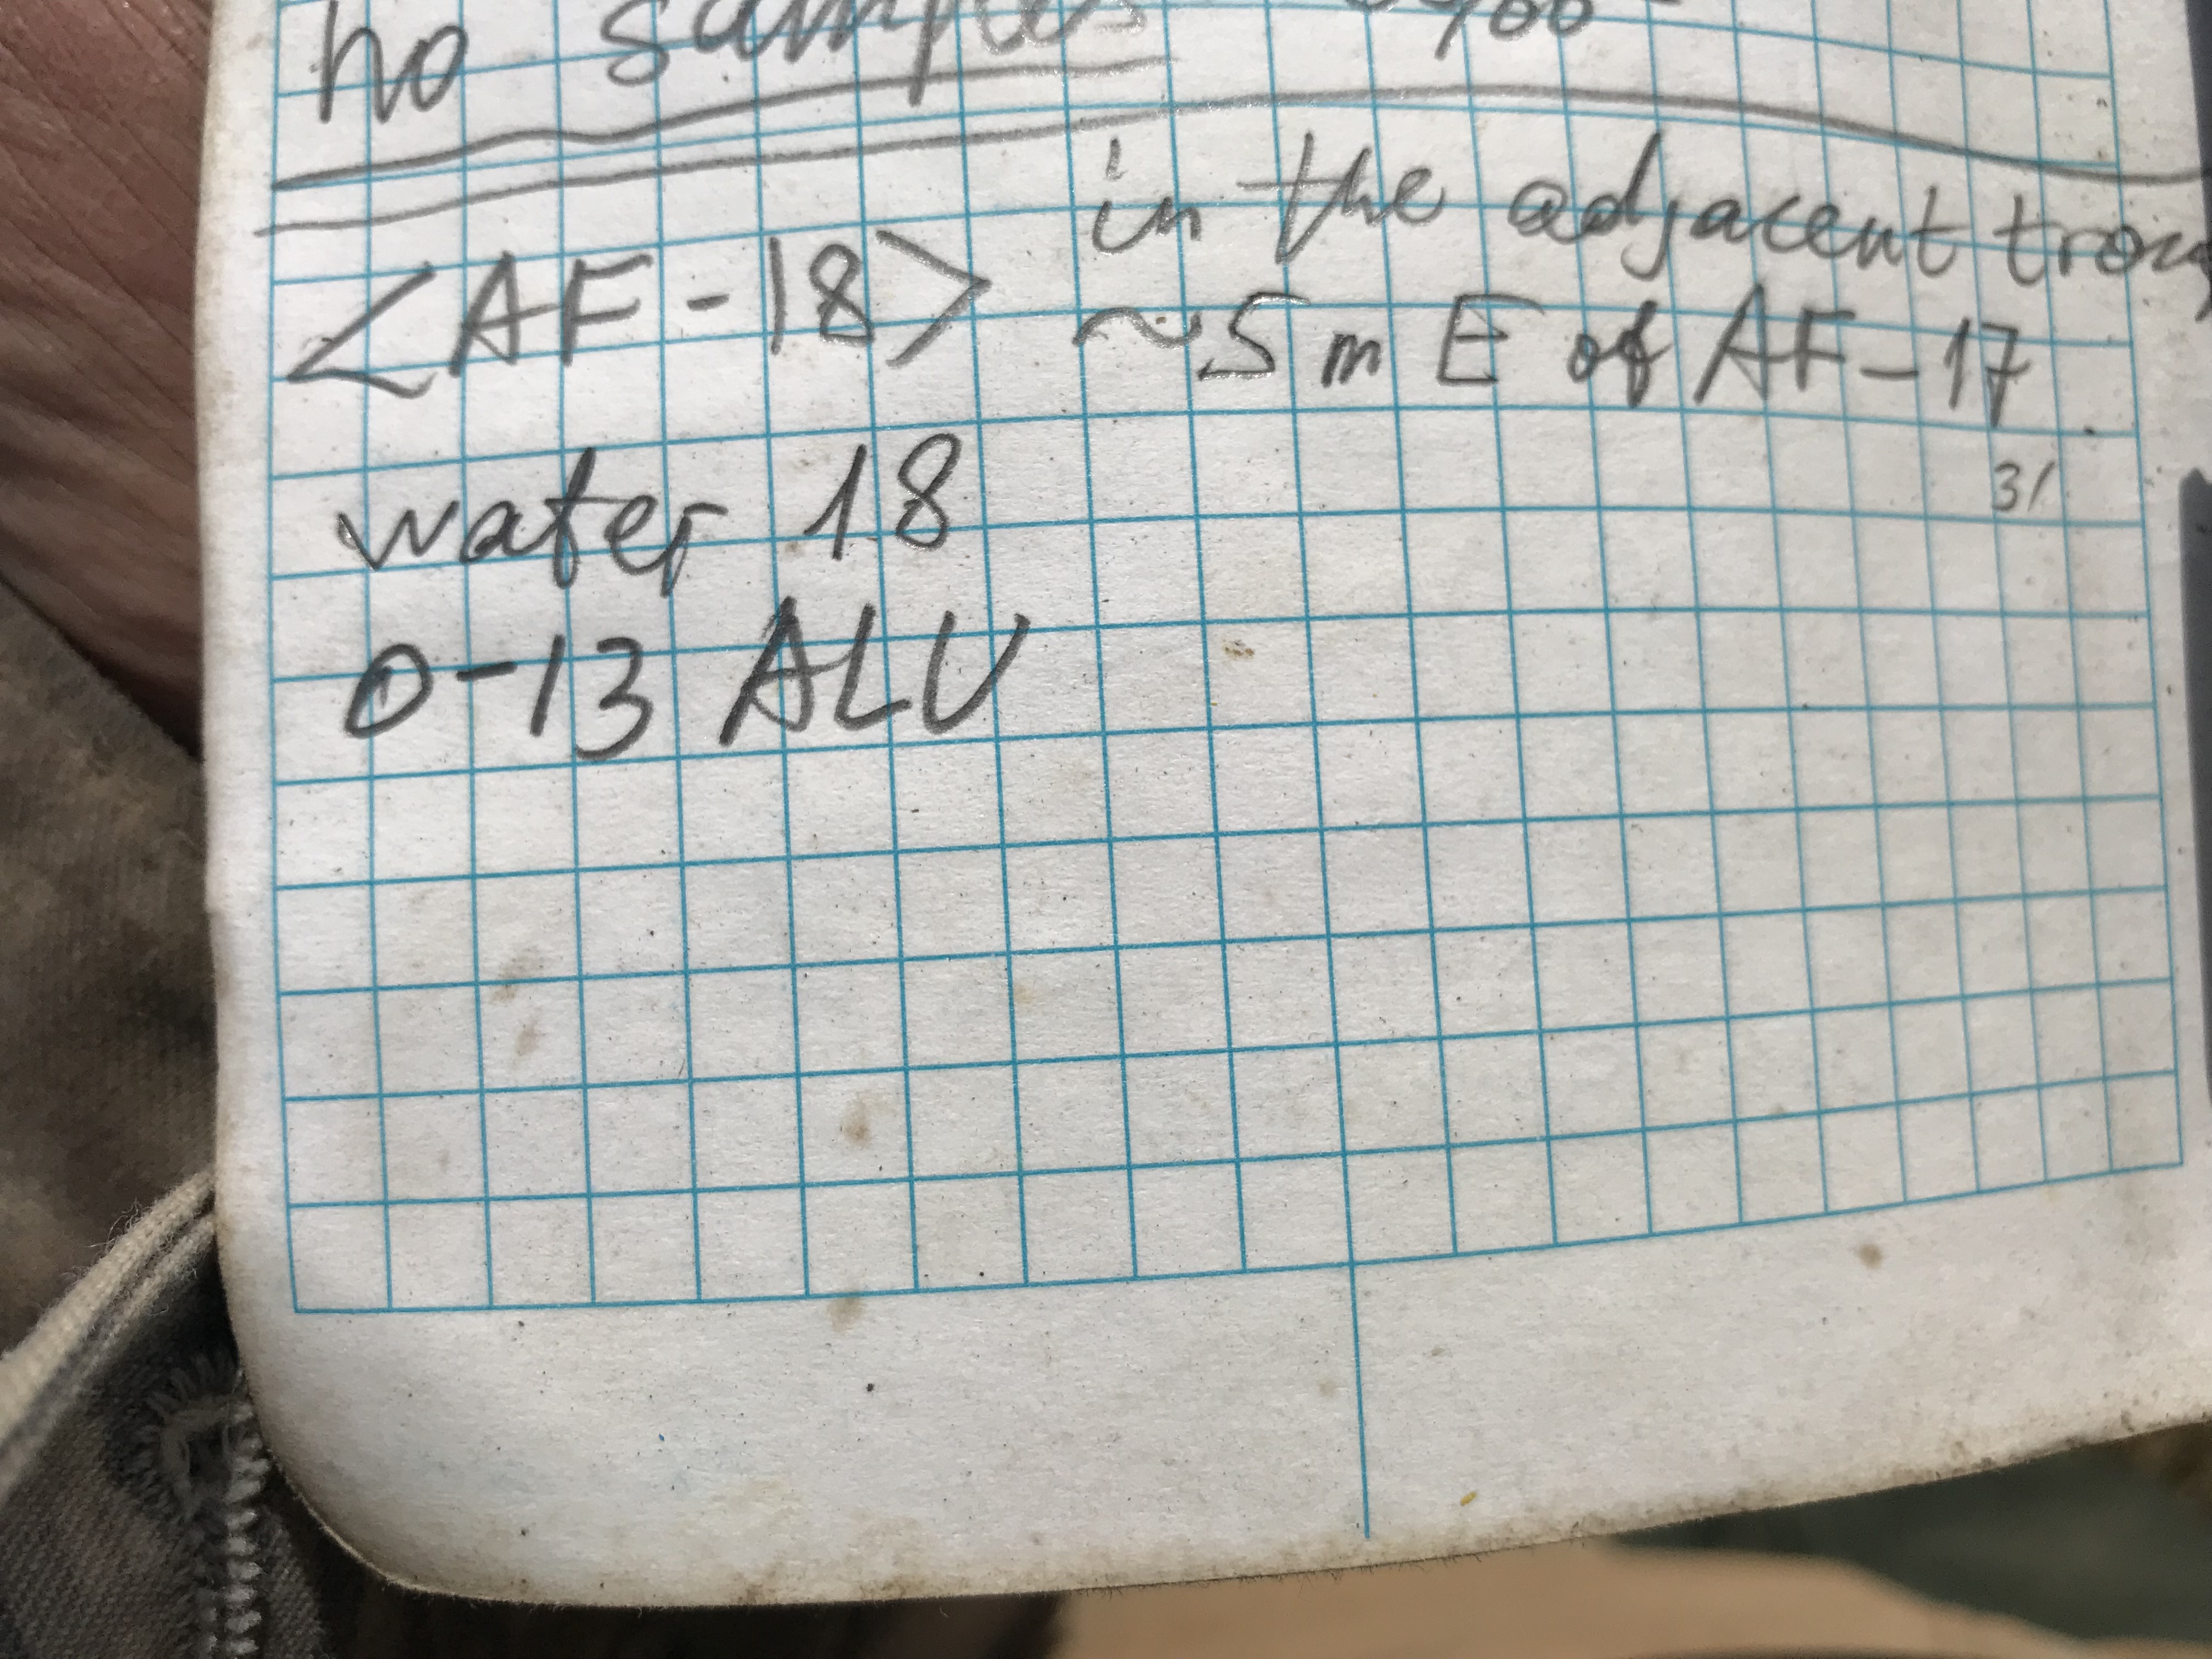 no samples
in the adjacent
<AF-18> ~5 m E of AF-17
31
water 18
0-13 ALV